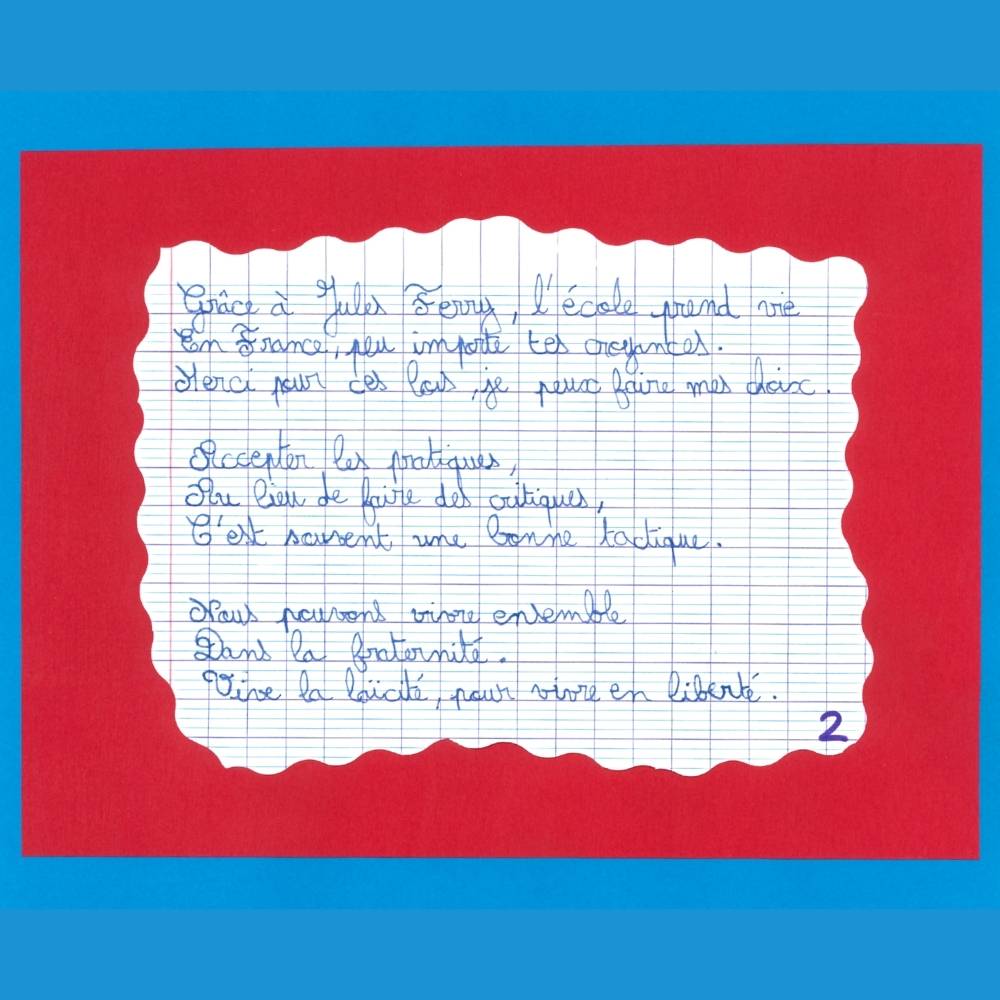 Grâce à Jules Ferry, l'école prend vie
En France, peu importe tes croyances.
Merci pour ces lois, je peux faire mes choix.
Accepter les pratiques,
Au lieu de faire des critiques,
C'est souvent une bonne tactique.
Nous pouvons vivre ensemble
Dans la fraternité.
Vive la laïcité, pour vivre en liberté.
2